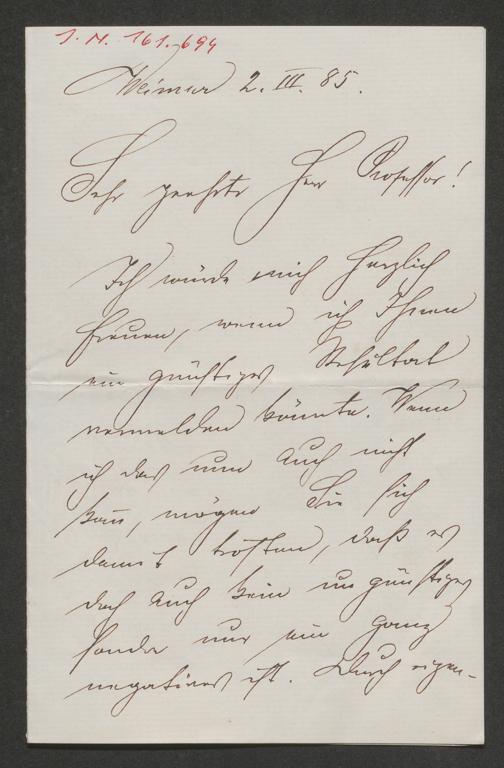 J. N. 161.694
Weimar 2. III. 85.
Sehr geehrter Herr Professor!
Ich würde mich herzlich
freuen, wenn ich Ihnen
ein günstiges Resultat
vermelden könnte. Wenn
ich das nun auch nicht
kann, mögen Sie sich
damit trösten, daß es
doch auch kein ungünstiges
sonder nur ein ganz
negatives ist. Auch eigen-